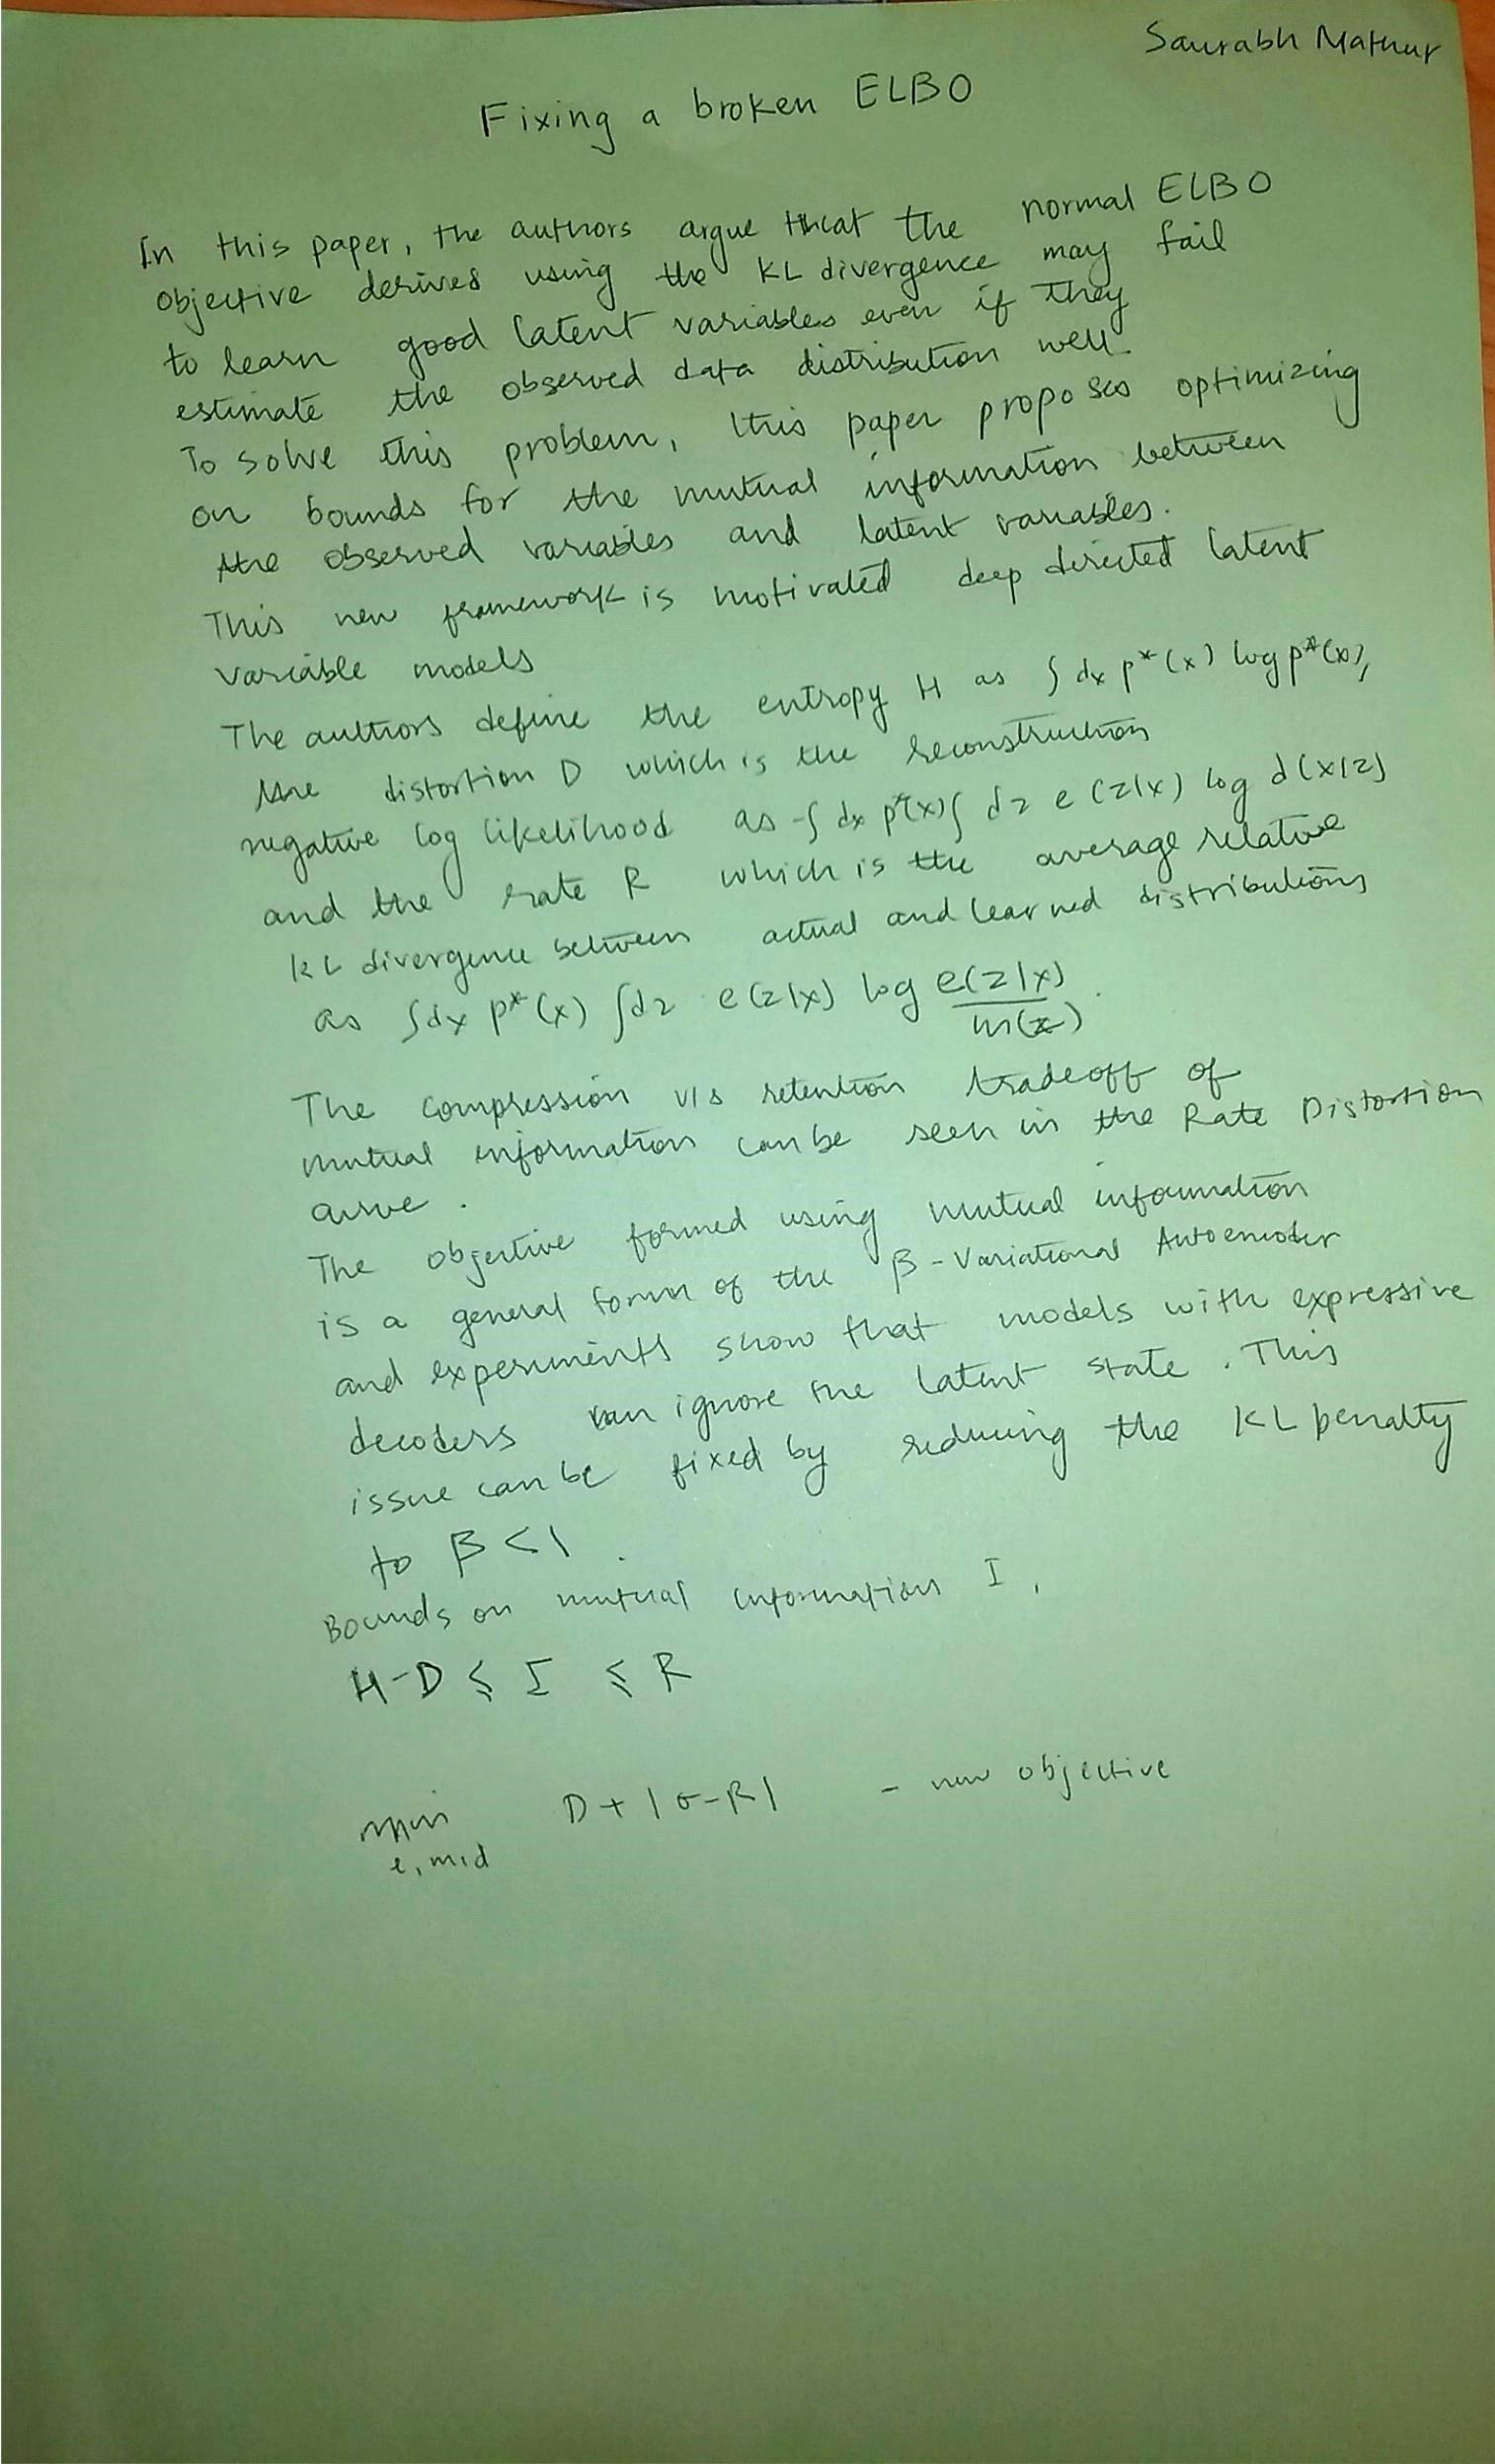 Saurabh Mathur
Fixing a broken ELBO
In this paper, the authors argue that the normal ELBO
objective derived using the KL divergence may fail
to learn good latent variables even if they
estimate the observed data distribution well.
To solve this problem, this paper proposes optimizing
on bounds for the mutual information between
the observed variables and latent variables.
This new framework is motivated deep directed latent
variable models
The authors define the entropy H as ∫ dx p*(x) log p*(x),
the distortion D which is the reconstruction
negative log likelihood as -∫ dx p*(x) ∫ dz e(z|x) log d(x|z)
and the rate R which is the average relative
KL divergence between actual and learned distributions
as ∫dx p*(x) ∫dz e(z|x) log e(z|x)/m(z).
The compression v/s retention tradeoff of
mutual information can be seen in the Rate Distortion
curve.
The objective formed using mutual information
is a general form of the β-Variational Autoencoder
and experiments show that models with expressive
decoders can ignore the latent state. This
issue can be fixed by reducing the KL penalty
to β<1.
Bounds on mutual information I,
H-D ≤ I ≤ R
min D + |σ-R| - new objective
e,m,d